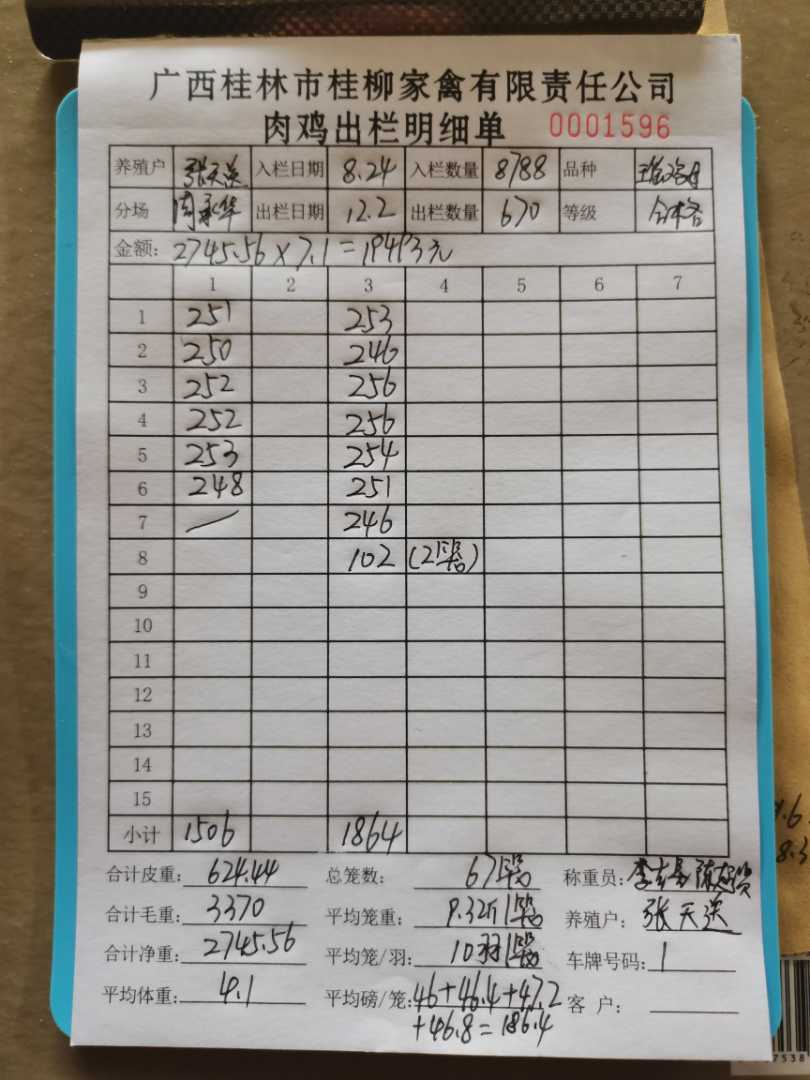 广西桂林市桂柳家禽有限责任公司
肉鸡出栏明细单 0001596
养殖户 张天送 入栏日期 8.24 入栏数量 8788 品种
分场 周承华 出栏日期 12.2 出栏数量 670 等级 合格
金额: 2745.56×7.1=19493元
1 2 3 4 5 6 7
1 251 253
2 250 246
3 252 256
4 252 256
5 253 254
6 248 251
7 — 246
8 102 (2只筐)
9
10
11
12
13
14
15
小计 1506 1864
合计皮重: 624.44 总笼数: 67 称重员:
合计毛重: 3370 平均笼重: 9.32斤/ 养殖户: 张天送
合计净重: 2745.56 平均笼/羽: 10羽/ 车牌号码: 1
平均体重: 4.1 平均磅/笼: 46+46.4+47.2 客 户:
+46.8=186.4